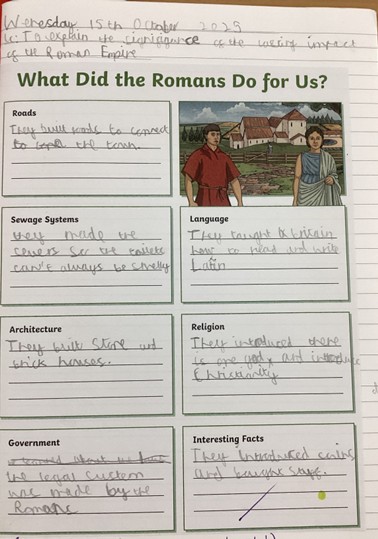 Wenesday 15th October 2025
L: To explain the signiggance of the lasting impact
of the Roman Empire
What Did the Romans Do for Us?
Roads
They built roads to connect
to the town.
Sewage Systems
they made the
sewers so the toilets
can't always be smelly
Language
They taught Britain
how to read and write
Latin
Architecture
They built stone and
brick houses.
Religion
They introduced there
is one god, and introduce
Christianity
Government
the legal custom
was made by the
Romans
Interesting Facts
They introduced coins
and bought stuff.